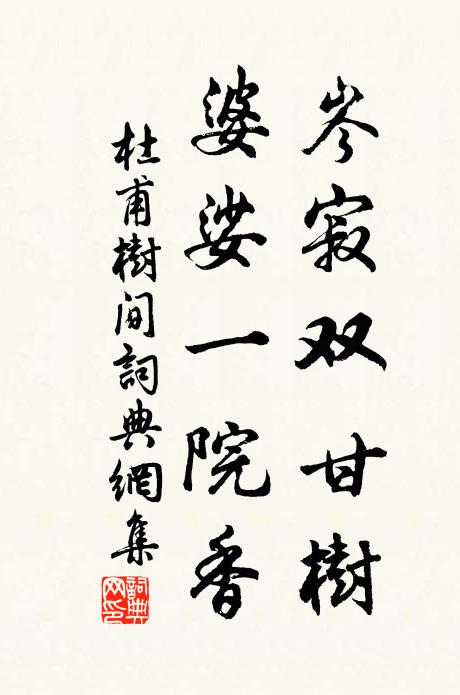 岑寂双甘樹
婆娑一院香
杜甫樹間詞典網集
詞典网印